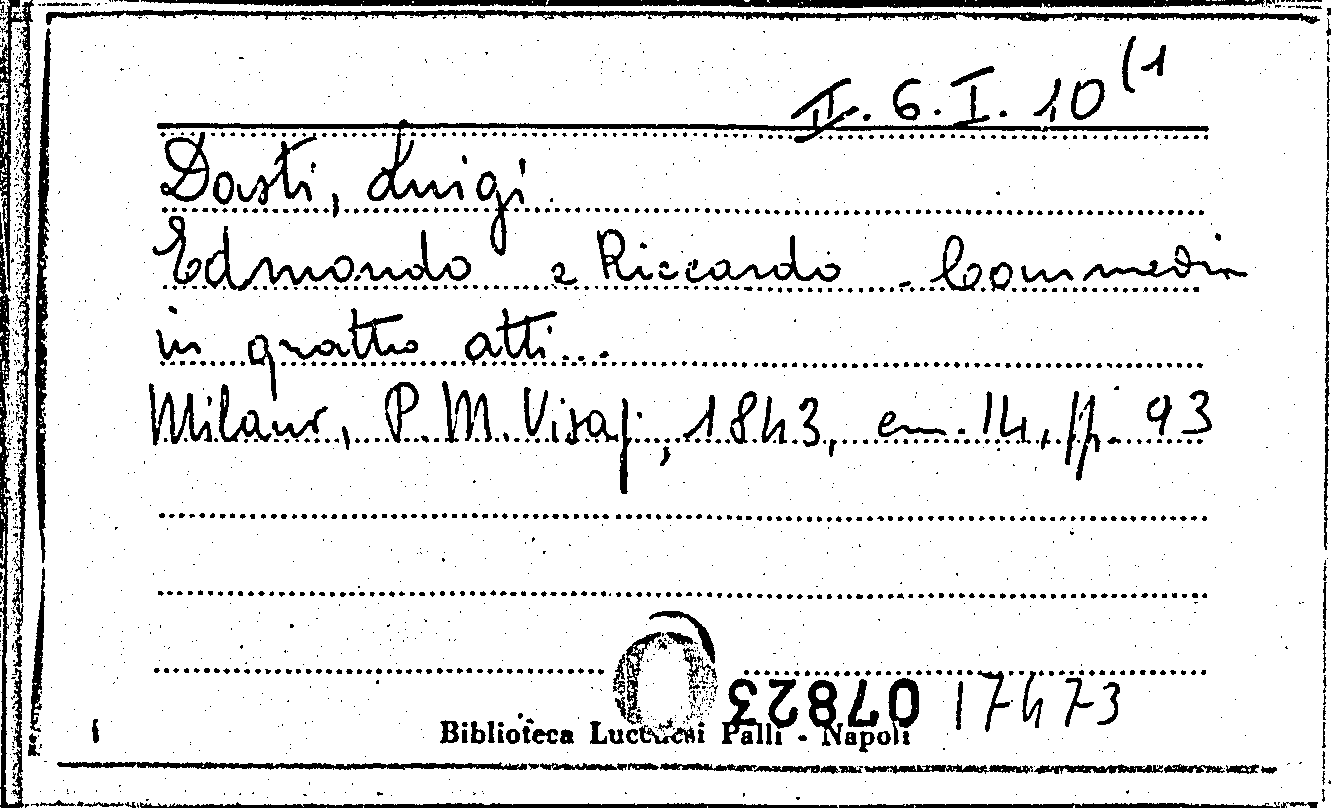 II. 6. I. 10 (1
Dasti, Luigi
Edmondo e Riccardo. Commedia
in quattro atti...
Milano, P. M. Visaj, 1843, cm. 14, pp. 93
07823 17473
Biblioteca Lucchesi Palli - Napoli